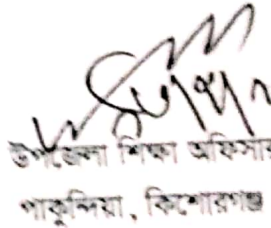 উপজেলা শিক্ষা অফিসার
পাকুন্দিয়া, কিশোরগঞ্জ